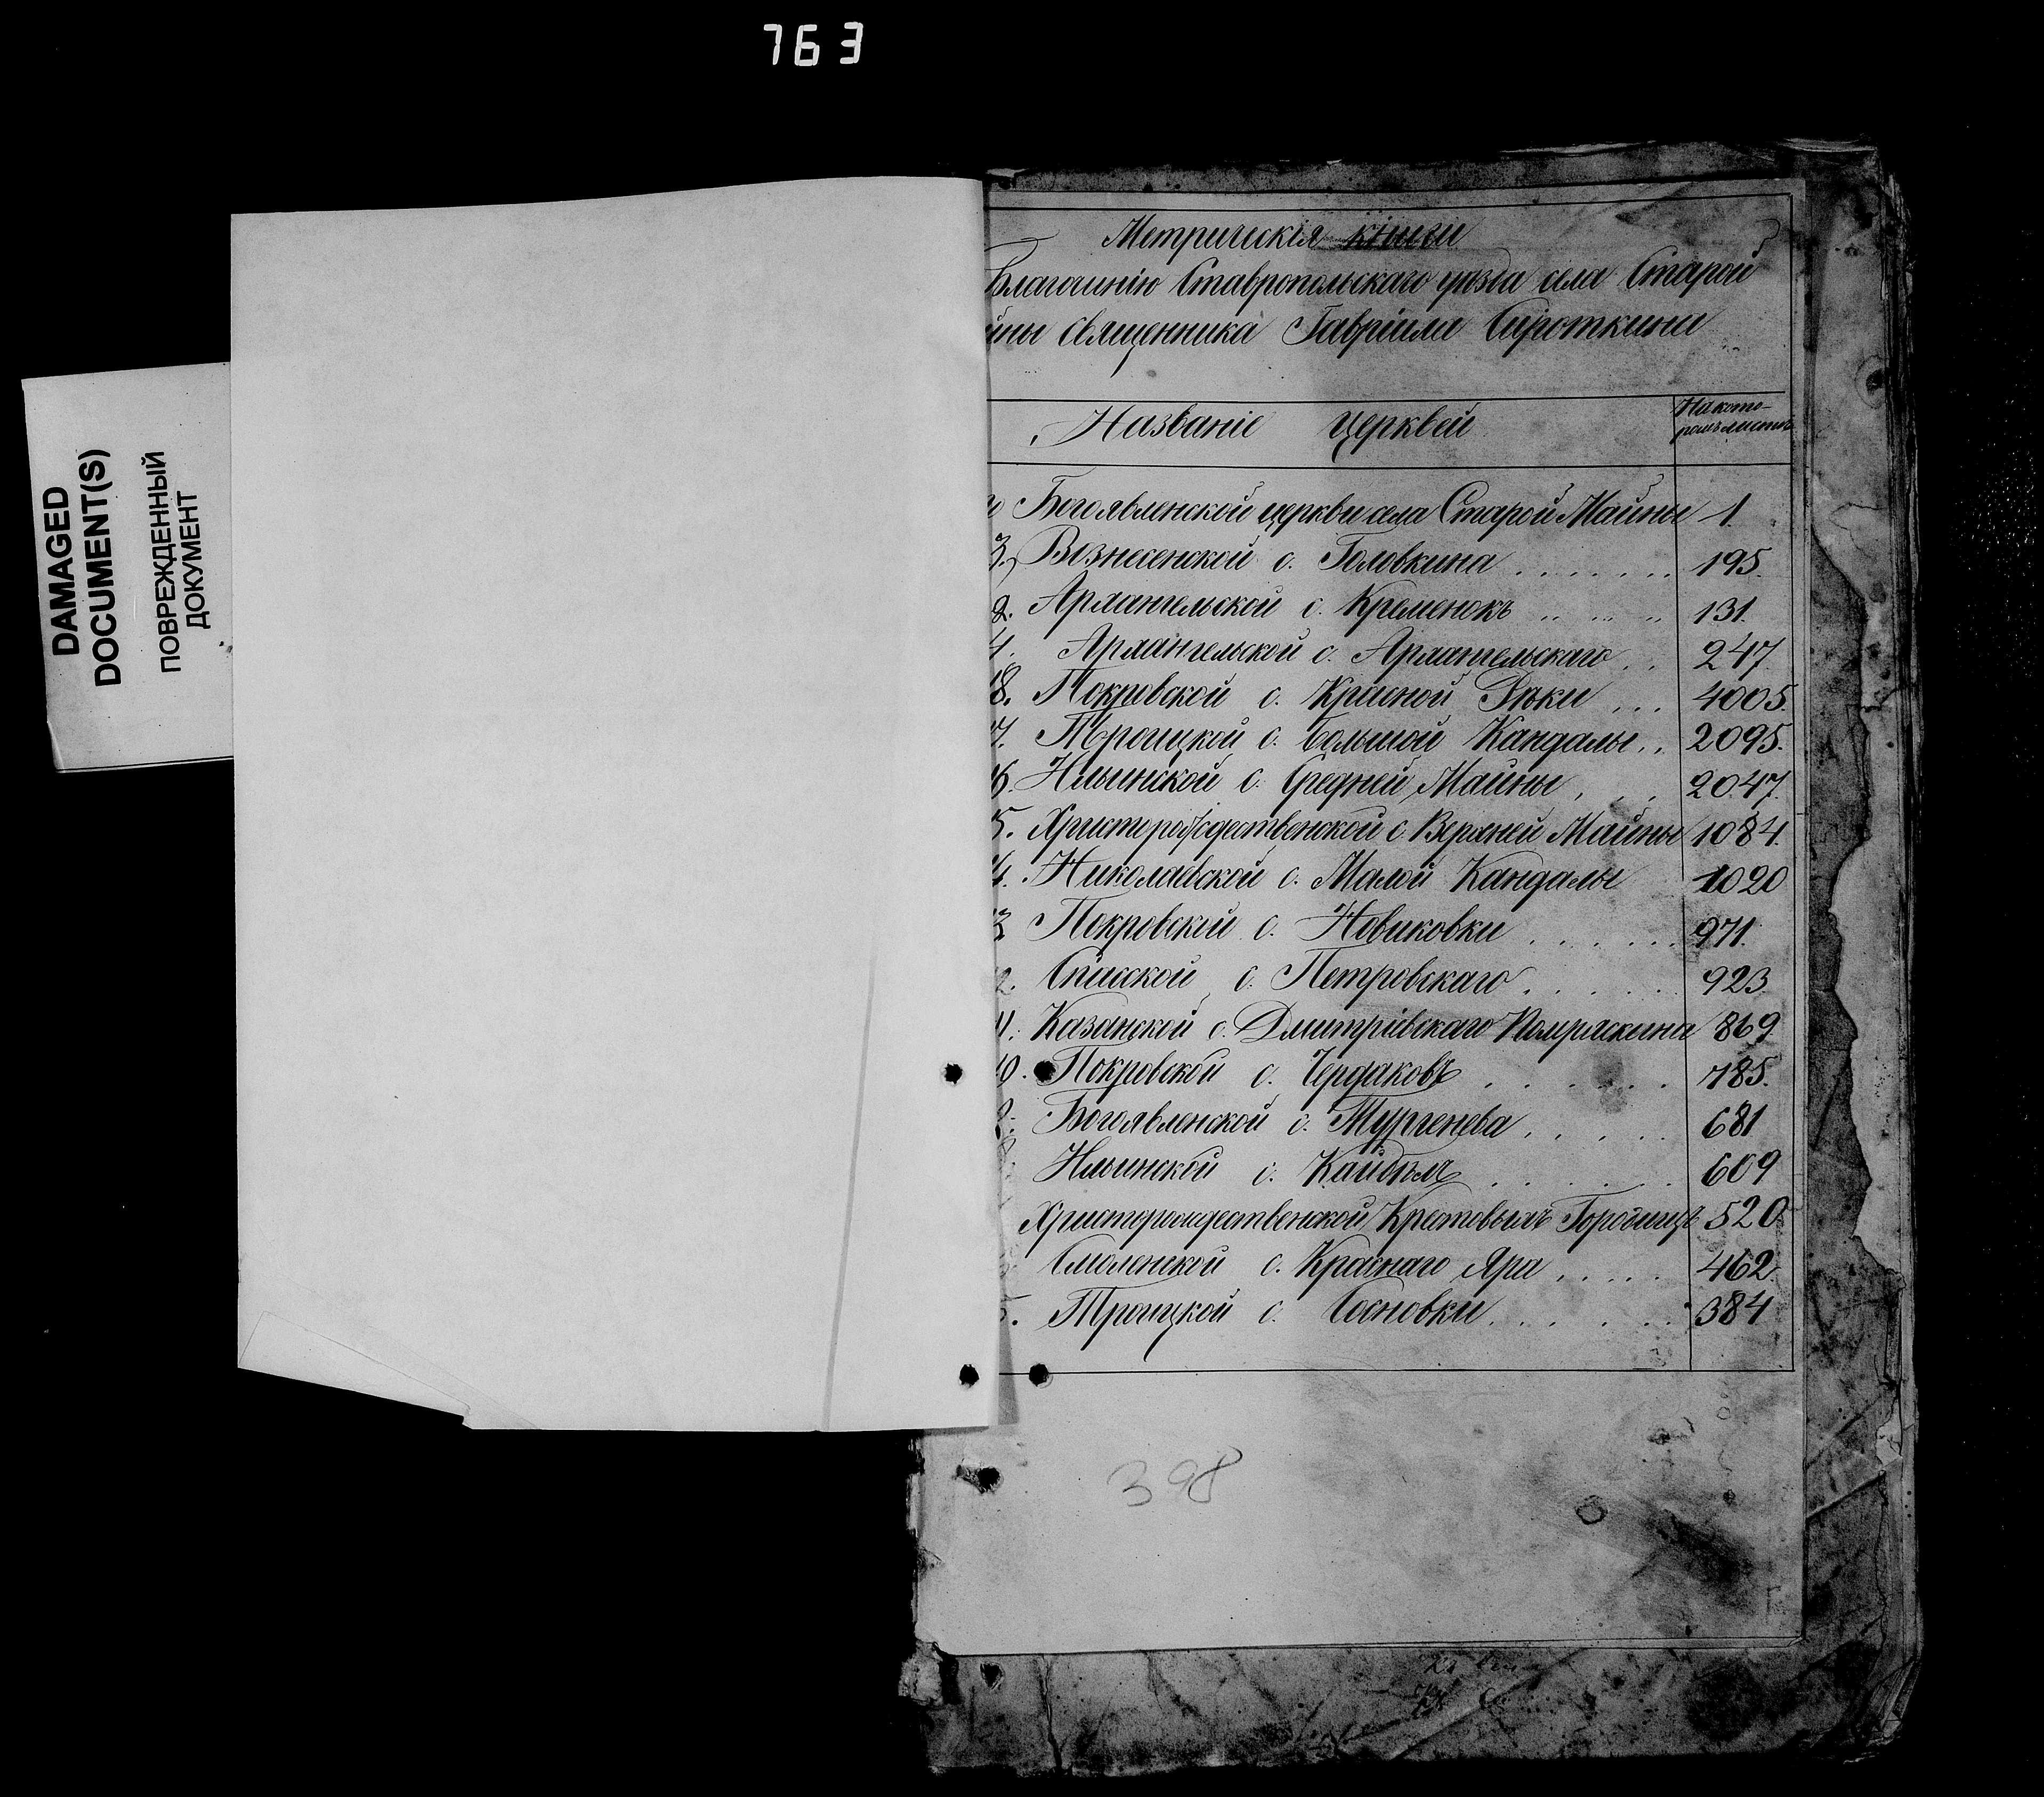 763
DAMAGED
DOCUMENT(S)
ПОВРЕЖДЕННЫЙ
ДОКУМЕНТ
Метрическія книги
Благочинію Ставропольскаго уѣзда села Старой
йны священника Гавріила Сироткина
Названіе церквей
На кото-
ромъ листѣ
Богоявленской церкви села Старой Майны 1.
3. Вознесенской с. Головкина . . . . . . . 195.
2. Архангельской с. Кременокъ . . . . . . 131.
4. Архангельской с. Архангельскаго . . 247.
18. Покровской с. Красной Рѣки . . . 4005.
7. Троицкой с. Большой Кандалы . . 2095.
16. Ильинской с. Средней Майны . . . 2047.
5. Христорождественской с. Верхней Майны 1084.
4. Николаевской с. Малой Кандалы 1020
3 Покровской с. Новиковки . . . . . . 971.
2. Спасской с. Петровскаго . . . . . 923.
11. Казанской с. Дмитріевскаго Помряскина 869
10. Покровской с. Чердаковъ . . . . . . 785.
9. Богоявленской с. Тургенева . . . . . 681
8. Ильинской с. Кайбѣлъ . . . . . . 609
Христорождественской Крестовыхъ Городищъ 520.
Смоленской с. Краснаго Яра . . . . . 462.
5. Троицкой с. Сосновки . . . . . . . 384
398